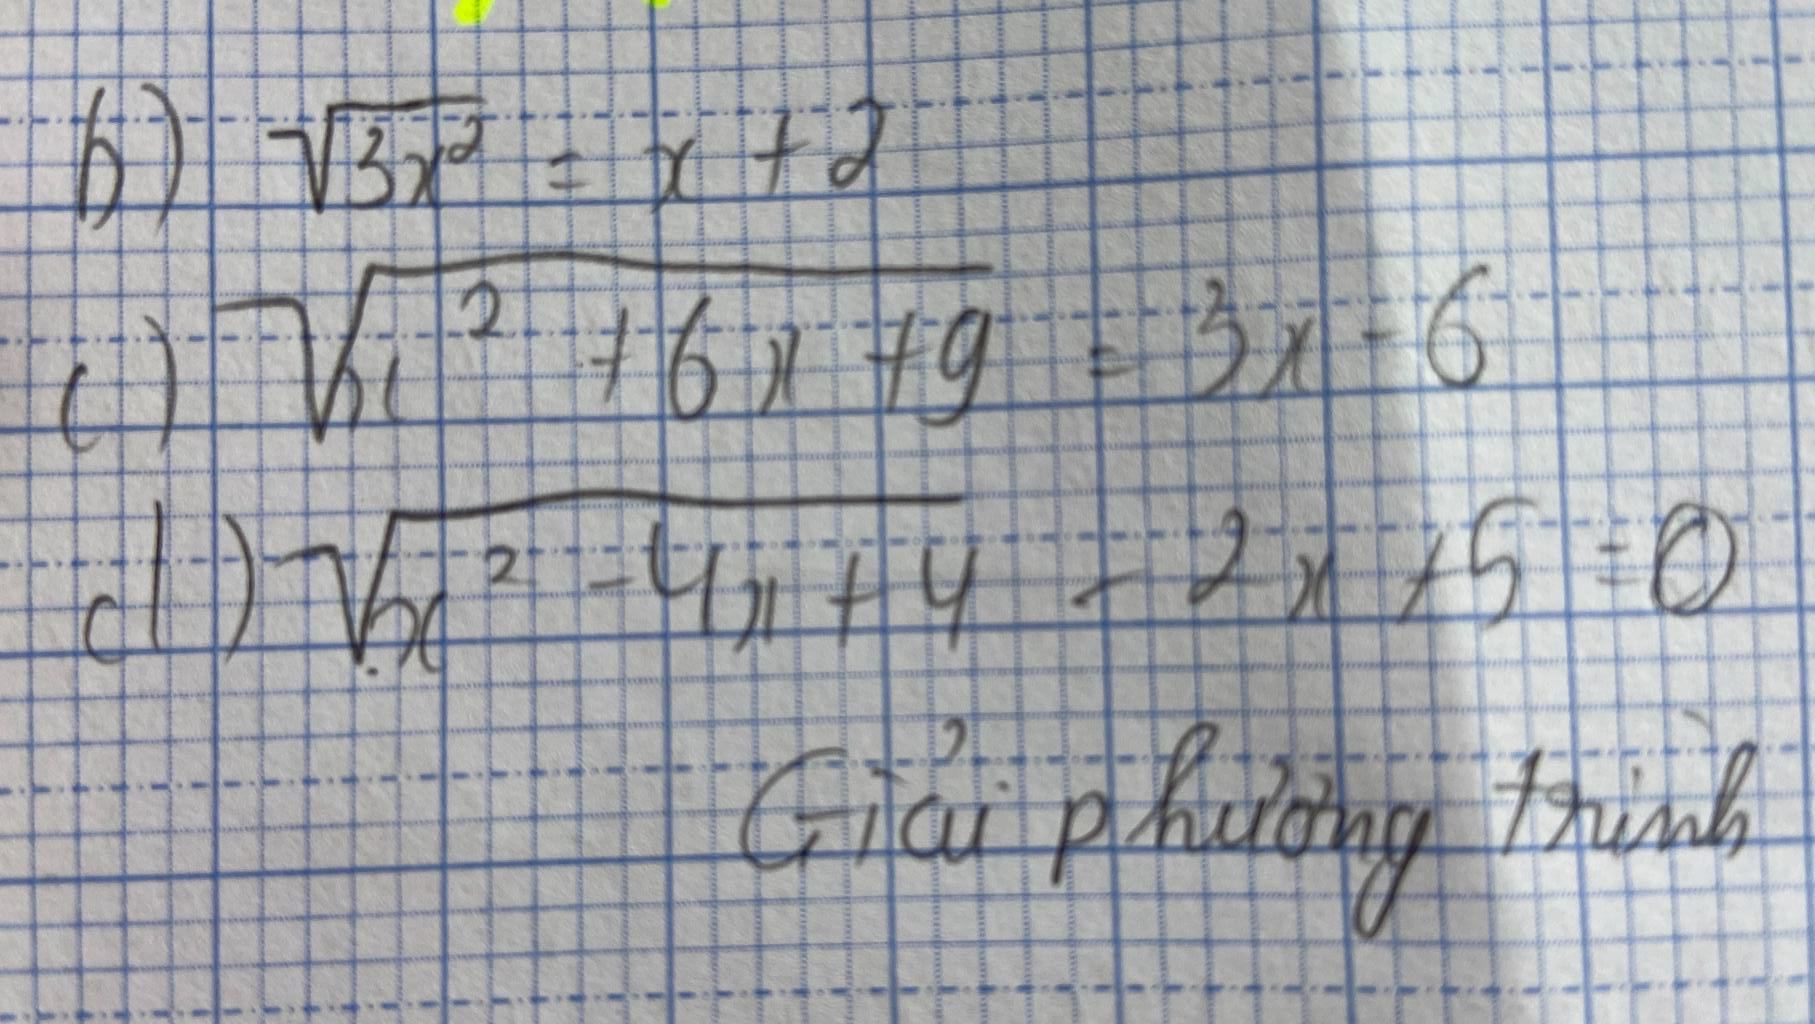 b) √3x² = x + 2
c) √x² + 6x + 9 = 3x - 6
d) √x² - 4x + 4 - 2x + 5 = 0
Giải phương trình